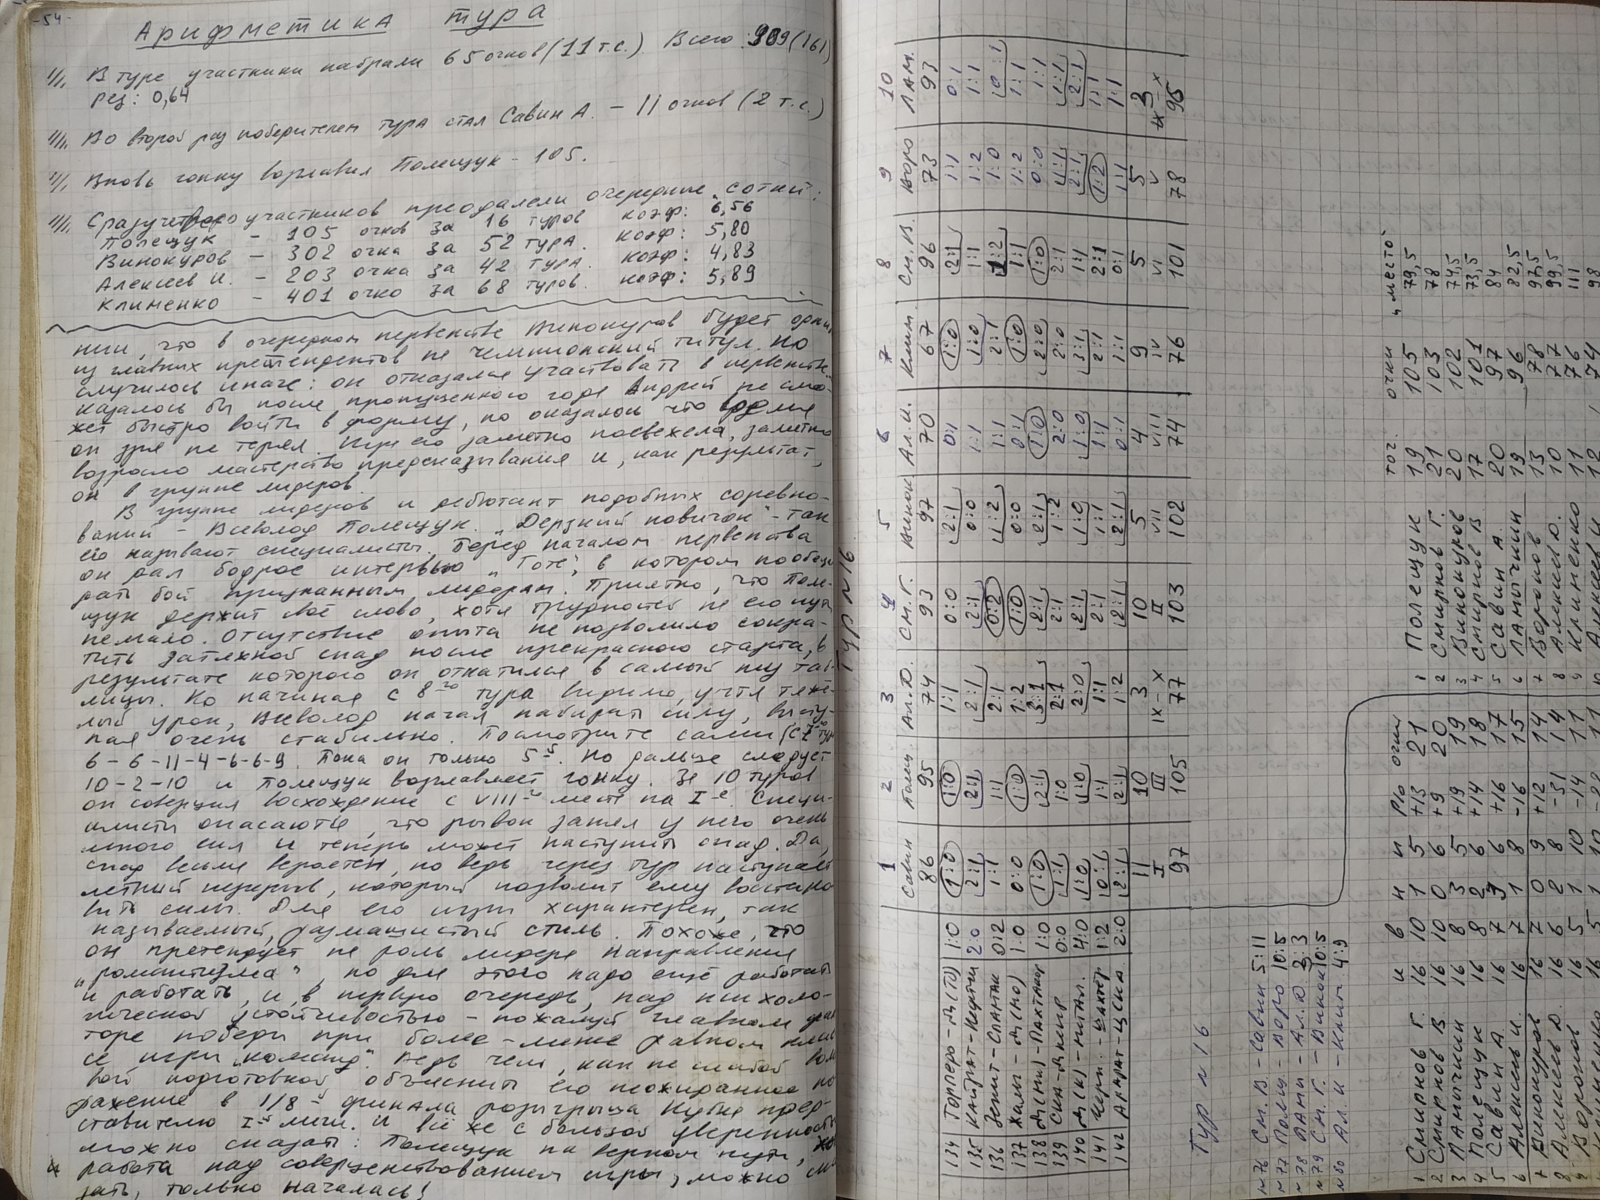 -54-
Арифметика тура
1/1. В туре участники набрали 65 очков (11 т.с.) Всего: 909 (161)
рез: 0,64
Во второй раз победителем тура стал Савин А. - 11 очков (2 т.с.)
Вновь гонку возглавил Полещук - 105.
Сразу четверо участников преодолели очередные "сотни":
Полещук - 105 очков за 16 туров коэф: 6,56
Винокуров - 302 очка за 52 тура. коэф: 5,80
Алексеев И. - 203 очка за 42 тура. коэф: 4,83
Клименко - 401 очко за 68 туров. коэф: 5,89
нии, что в очередном первенстве Винокуров будет одним
из главных претендентов на чемпионский титул. Но
случилось иначе: он отказался участвовать в первенстве.
казалось бы после пропущенного года Андрей не смо-
жет быстро войти в форму, но оказалось что время
он зря не терял. Игра его заметно посвежела, заметно
возросло мастерство предсказывания и, как результат,
он в группе лидеров.
В группе лидеров и дебютант подобных соревно-
ваний - Всеволод Полещук. "Дерзкий новичок" - так
его называют специалисты. Перед началом первенства
он дал бодрое интервью "Готе", в котором пообещ
дать бой признанным лидерам. Приятно, что Поле-
щук держит своё слово, хотя трудностей на его пути
немало. Отсутствие опыта не позволило сокра-
тить затяжной спад после прекрасного старта, в
результате которого он откатился в самый низ таб-
лицы. Но начиная с 8го тура видимо, учтя тяжё-
лый урок, Всеволод начал набирать силу, высту-
пая очень стабильно. Посмотрите сами (с 7го тур
6-6-11-4-6-6-9. Пока он только 5й. Но дальше следует
10-2-10 и Полещук возглавляет гонку. За 10 туров
он совершил восхождение с VIII-го места на I-е. Специ-
алисты опасаются, что рывок занял у него очень
много сил и теперь может наступить спад. Да,
спад весьма вероятен, но ведь через тур наступает
летний перерыв, который позволит ему восстано
вить силы. Для его игры характерен, так
называемый, размашистый стиль. Похоже, что
он претендует на роль лидера направления
"романтизма", но для этого надо ещё работать
и работать, и, в первую очередь, над психоло-
гической устойчивостью - пожалуй главном фак
торе победы при более-менее равном клас
се игры команд. Ведь чем, как не слабой
вой подготовкой объяснить его неожиданное по
ражение в 1/8й финала розыгрыша Кубка пред-
ставителю I-й лиги. И всё же с большой уверенностью
можно сказать: Полещук на верном пути,
работа над совершенствованием игры, можно ска
зать, только началась!
Тур №16
1 2 3 4 5 6 7 8 9 10
Савин Полещ. Ал.Ю. См.Г. Винок Ал.И. Клим См.В Воро Лам.
86 95 74 93 97 70 67 96 73 93
134 Торпедо - Д(Тб) 1:0 1:0 1:0 1:1 0:0 2:1 0:1 1:0 2:1 1:1 0:1
135 Кайрат - Кефтчи 2:0 2:1 2:1 2:1 2:1 0:0 1:1 1:0 1:1 1:2 1:1
136 Зенит - Спартак 0:2 1:1 1:1 2:1 0:2 1:2 1:1 2:1 1:2 1:0 0:1
137 Жальг - Д(Мо) 1:0 0:0 1:0 1:2 1:0 0:0 0:1 1:0 1:1 1:2 1:1
138 Д(Мн) - Пахтакор 1:0 1:0 2:1 3:1 2:1 2:1 1:0 2:0 1:0 0:0 1:1
139 СКА - Днепр 0:0 1:1 1:0 2:1 2:1 1:2 2:0 2:0 2:1 1:1 1:1
140 Д(К) - Митал. 4:0 1:0 1:0 2:0 2:1 1:0 1:0 3:1 1:1 2:1 2:1
141 Черн. - Шахтер 1:2 0:1 1:1 1:1 2:1 1:1 1:1 2:1 2:1 1:2 1:1
142 Арарат - ЦСКА 2:0 2:1 2:1 1:2 2:1 2:1 0:1 1:1 0:1 1:1 1:1
11 10 3 10 5 4 9 5 5 3
I III IX-X II VII VIII IV VI V IX-X
97 105 77 103 102 74 76 101 78 96
Тур №16
№76 См.В - Савин 5:11
№77 Полещ - Воро 10:5
№78 Лам - Ал.Ю 3:3
№79 См.Г. - Винок 10:5
№80 Ал.И - Клим 4:9
И В Н П Р/о очки
1 Смирнов Г. 16 10 1 5 +13 21
2 Смирнов В. 16 10 0 6 +9 20
3 Ламычкин 16 8 3 5 +19 19
4 Полещук 16 8 2 6 +14 18
5 Савин А. 16 7 3 6 +16 17
6 Алексеев И. 16 7 1 8 -16 15
7 Винокуров 16 7 0 9 +12 14
8 Алексеев Ю. 16 6 2 8 -31 14
9 Воронов 16 5 1 10 -14 11
Клименко 16 5 1 10 11
тоť. очки "место"
1 Полещук 19 105 79,5
2 Смирнов Г. 21 103 78
3 Винокуров 20 102 74,5
4 Смирнов В 17 101 73,5
5 Савин А. 20 97 84
6 Ламычкин 19 96 82,5
7 Воронов 13 78 97,5
8 Алексеев Ю. 10 77 99,5
9 Клименко 11 76 111
10 Алексеев И 12 74 98